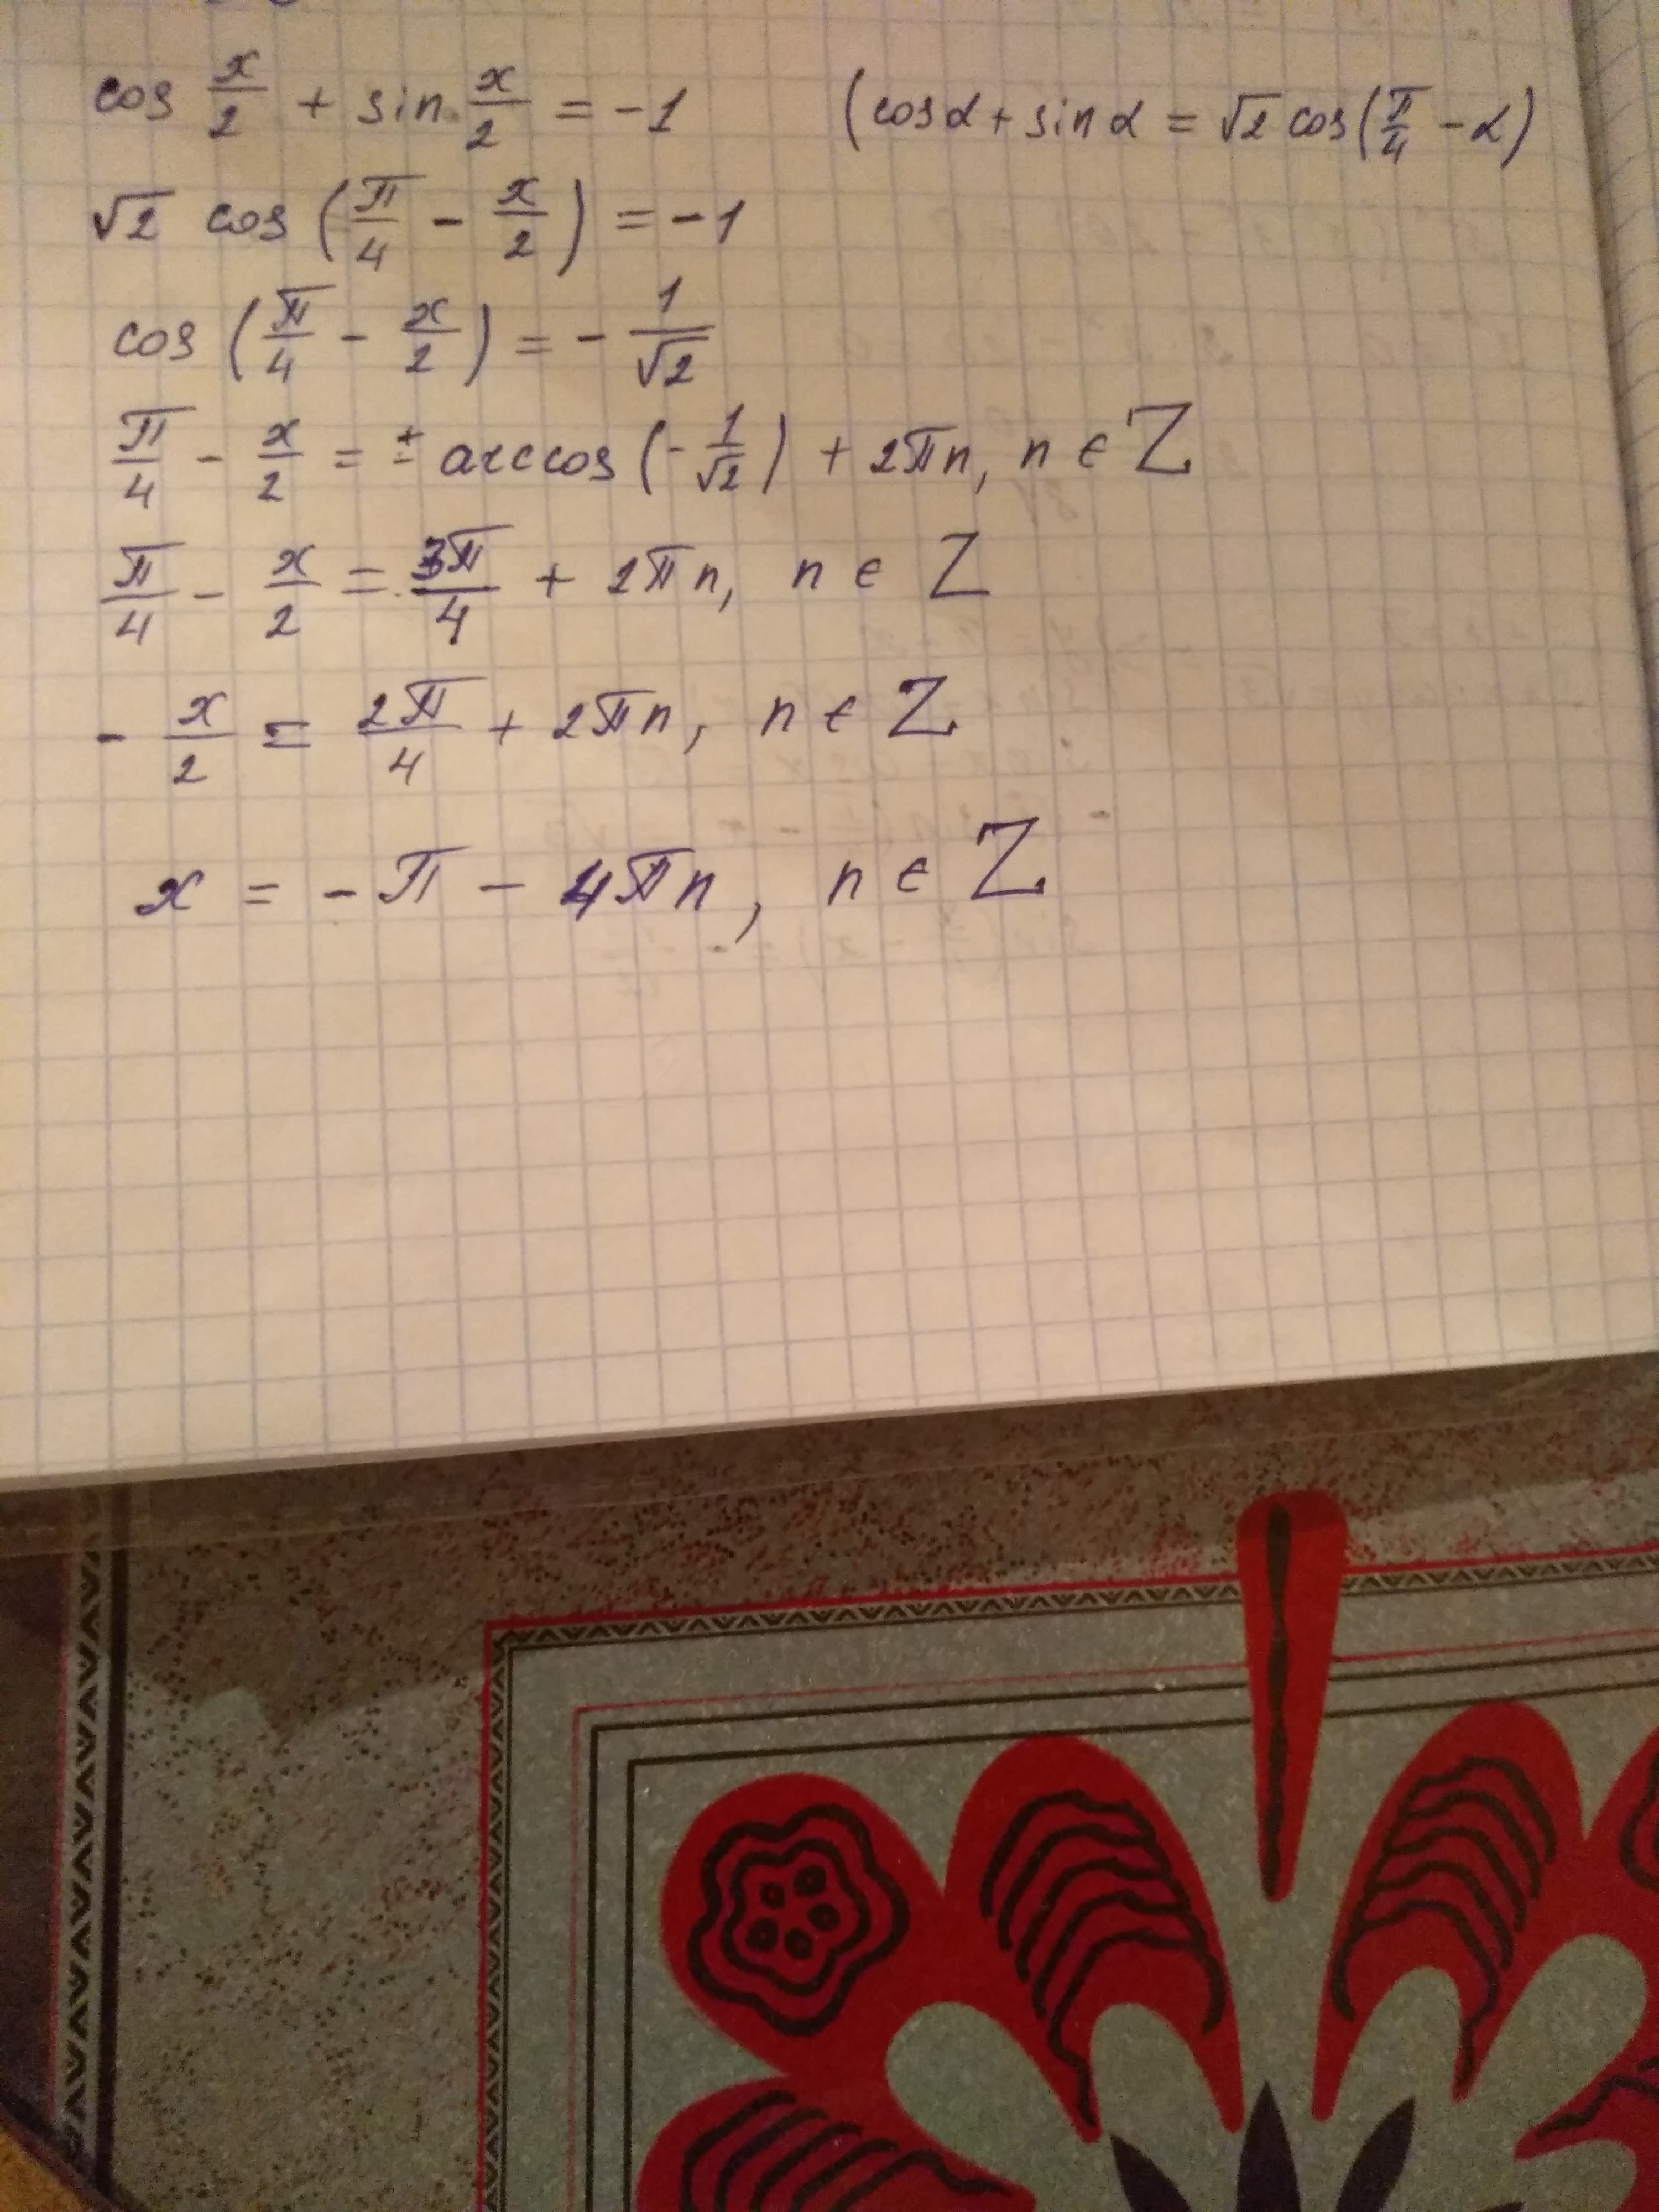 cos x/2 + sin x/2 = -1 (cosα + sinα = √2 cos(π/4 - α)
√2 cos (π/4 - x/2) = -1
cos (π/4 - x/2) = - 1/√2
π/4 - x/2 = ± arccos (- 1/√2) + 2πn, n ∈ Z
π/4 - x/2 = 3π/4 + 2πn, n ∈ Z
- x/2 = 2π/4 + 2πn, n ∈ Z
x = - π - 4πn, n ∈ Z